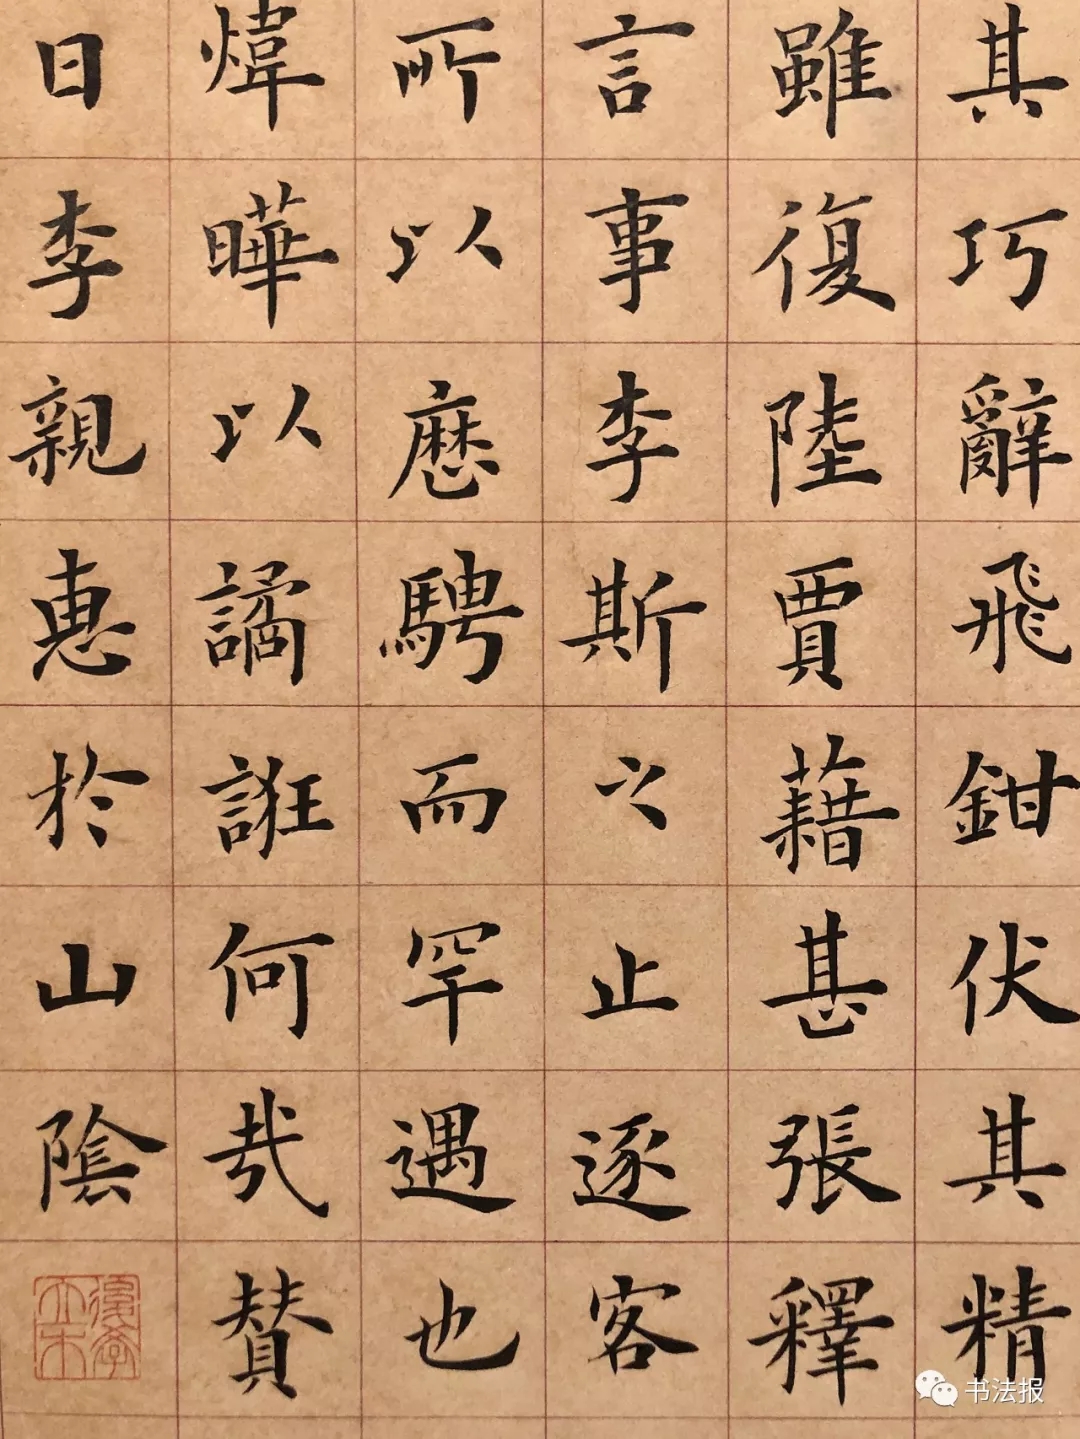 其巧辭飛鉗伏其精
雖復陸賈藉甚張釋
言事李斯之止逐客
所以歷騁而罕遇也
煒曄以譎誑何哉贊
日李親惠於山陰
书法报